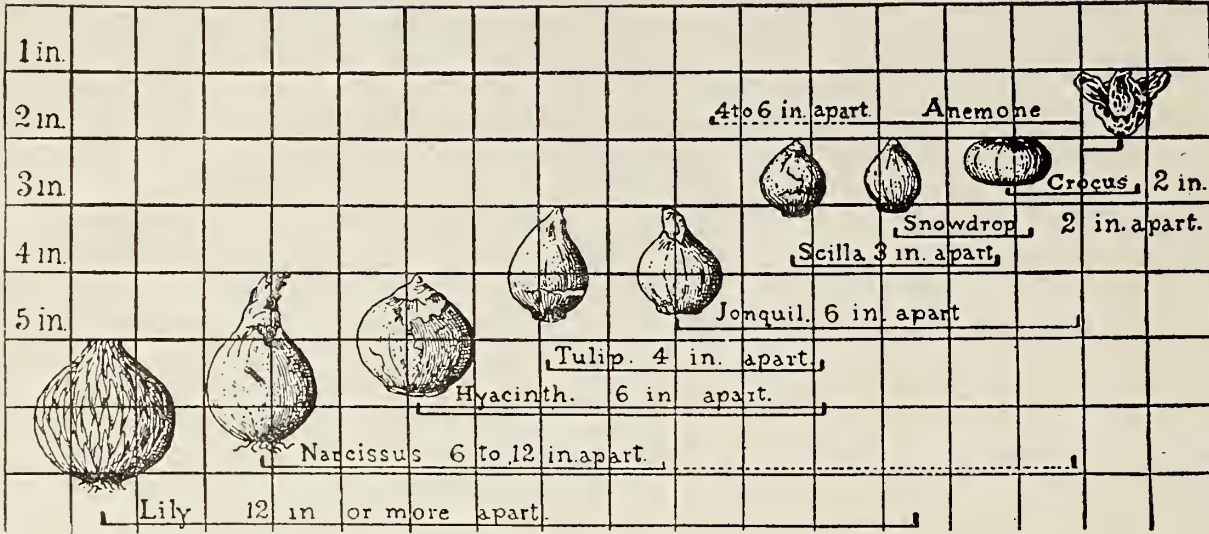 1 in.
2 in.
4 to 6 in. apart. Anemone
3 in.
Crocus, 2 in.
Snowdrop 2 in. apart.
4 in.
Scilla 3 in. apart
5 in.
Jonquil. 6 in. apart
Tulip. 4 in. apart.
Hyacinth. 6 in apart.
Narcissus 6 to 12 in. apart.
Lily 12 in or more apart.